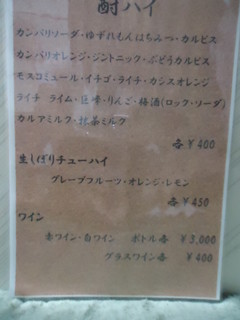 酎ハイ
カンパリソーダ・ゆずれもんはちみつ・カルピス
カンパリオレンジ・ジントニック・ぶどうカルピス
モスコミュール・イチゴ・ライチ・カシスオレンジ
ライチ ライム・巨峰・りんご・梅酒(ロック・ソーダ)
カルアミルク・抹茶ミルク
各¥400
生しぼりチューハイ
グレープフルーツ・オレンジ・レモン
各¥450
ワイン
赤ワイン・白ワイン ボトル各 ¥3,000
グラスワイン各 ¥400